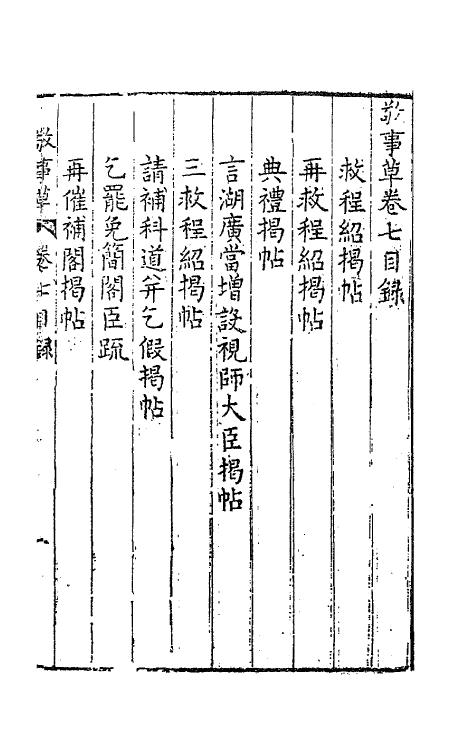 敬事草卷七目錄
救程紹揭帖
再救程紹揭帖
典禮揭帖
言湖廣當增設視師大臣揭帖
三救程紹揭帖
請補科道并乞假揭帖
乞罷免簡閣臣疏
再催補閣揭帖
敬事草 卷七目錄